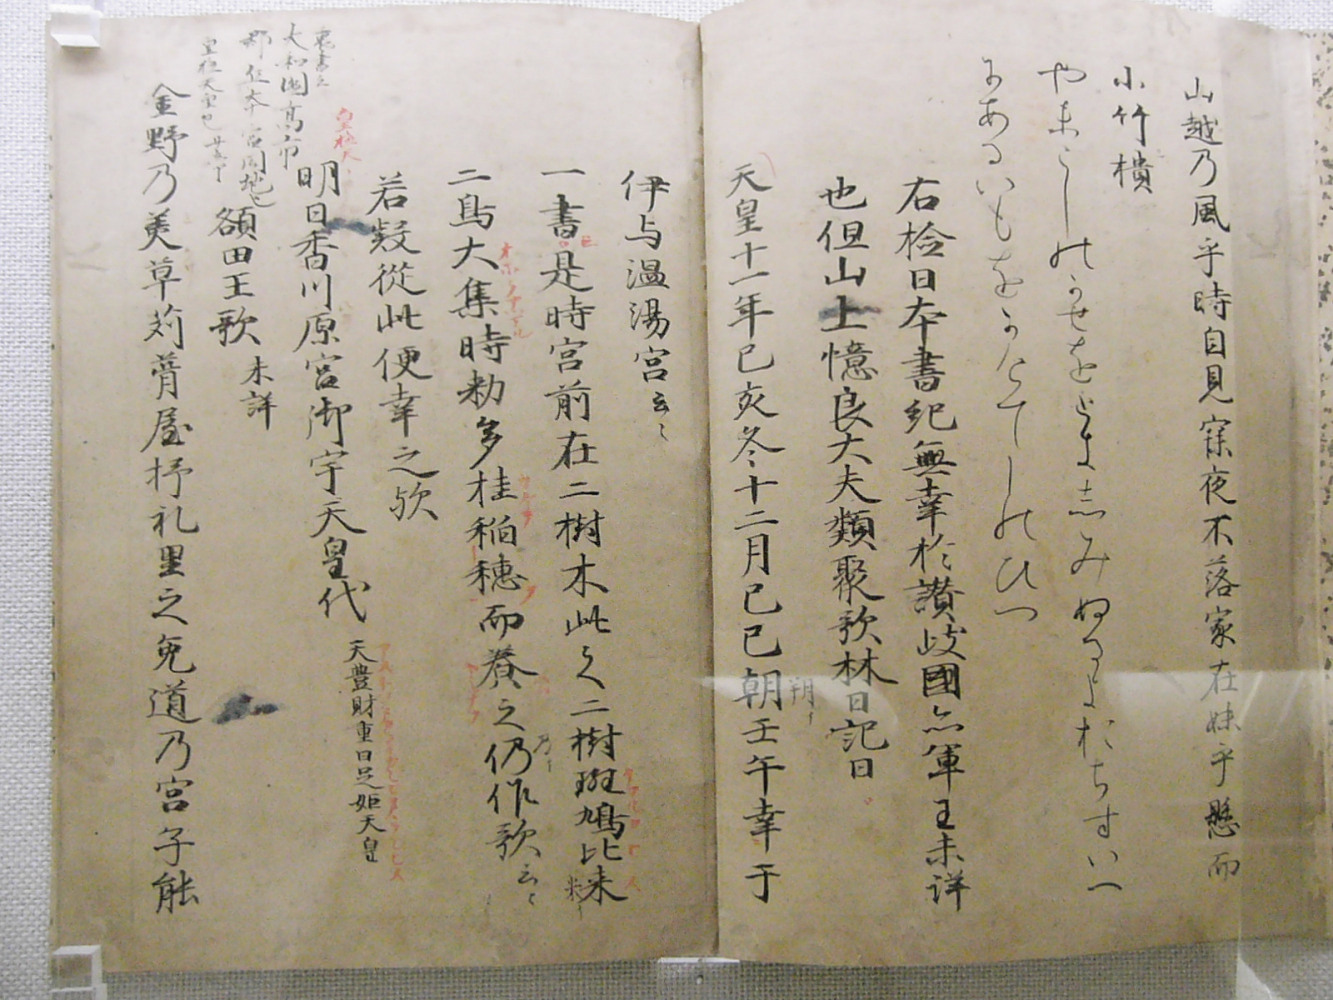 山越乃風乎時自見寐夜不落家在妹乎懸而
小竹樻
やまこしのかせをときしみぬるよおちすいへ
にあるいもをかけてしのひつ
右検日本書紀無幸於讃岐國亦軍王未詳
也但山上憶良大夫類聚歌林日記曰
天皇十一年己亥冬十二月己巳朝壬午幸于
朔
伊与温湯宮云々
一書是時宮前在二樹木此之二樹斑鳩比来
米
二鳥大集時勅多桂稲穂而養之仍作歌云々
乃
若疑従此便幸之歟
明日香川原宮御宇天皇代 天豊財重日足姫天皇
皇極天
裏書云
大和國高市
郡丘本宮同地也
皇極天皇
額田王歌 未詳
金野乃美草苅葺屋杼礼里之兔道乃宮子能